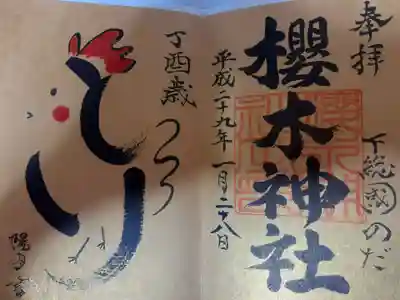 奉拝
下總國のだ
櫻木神社
平成二十九年一月二十八日
丁酉歳
とり